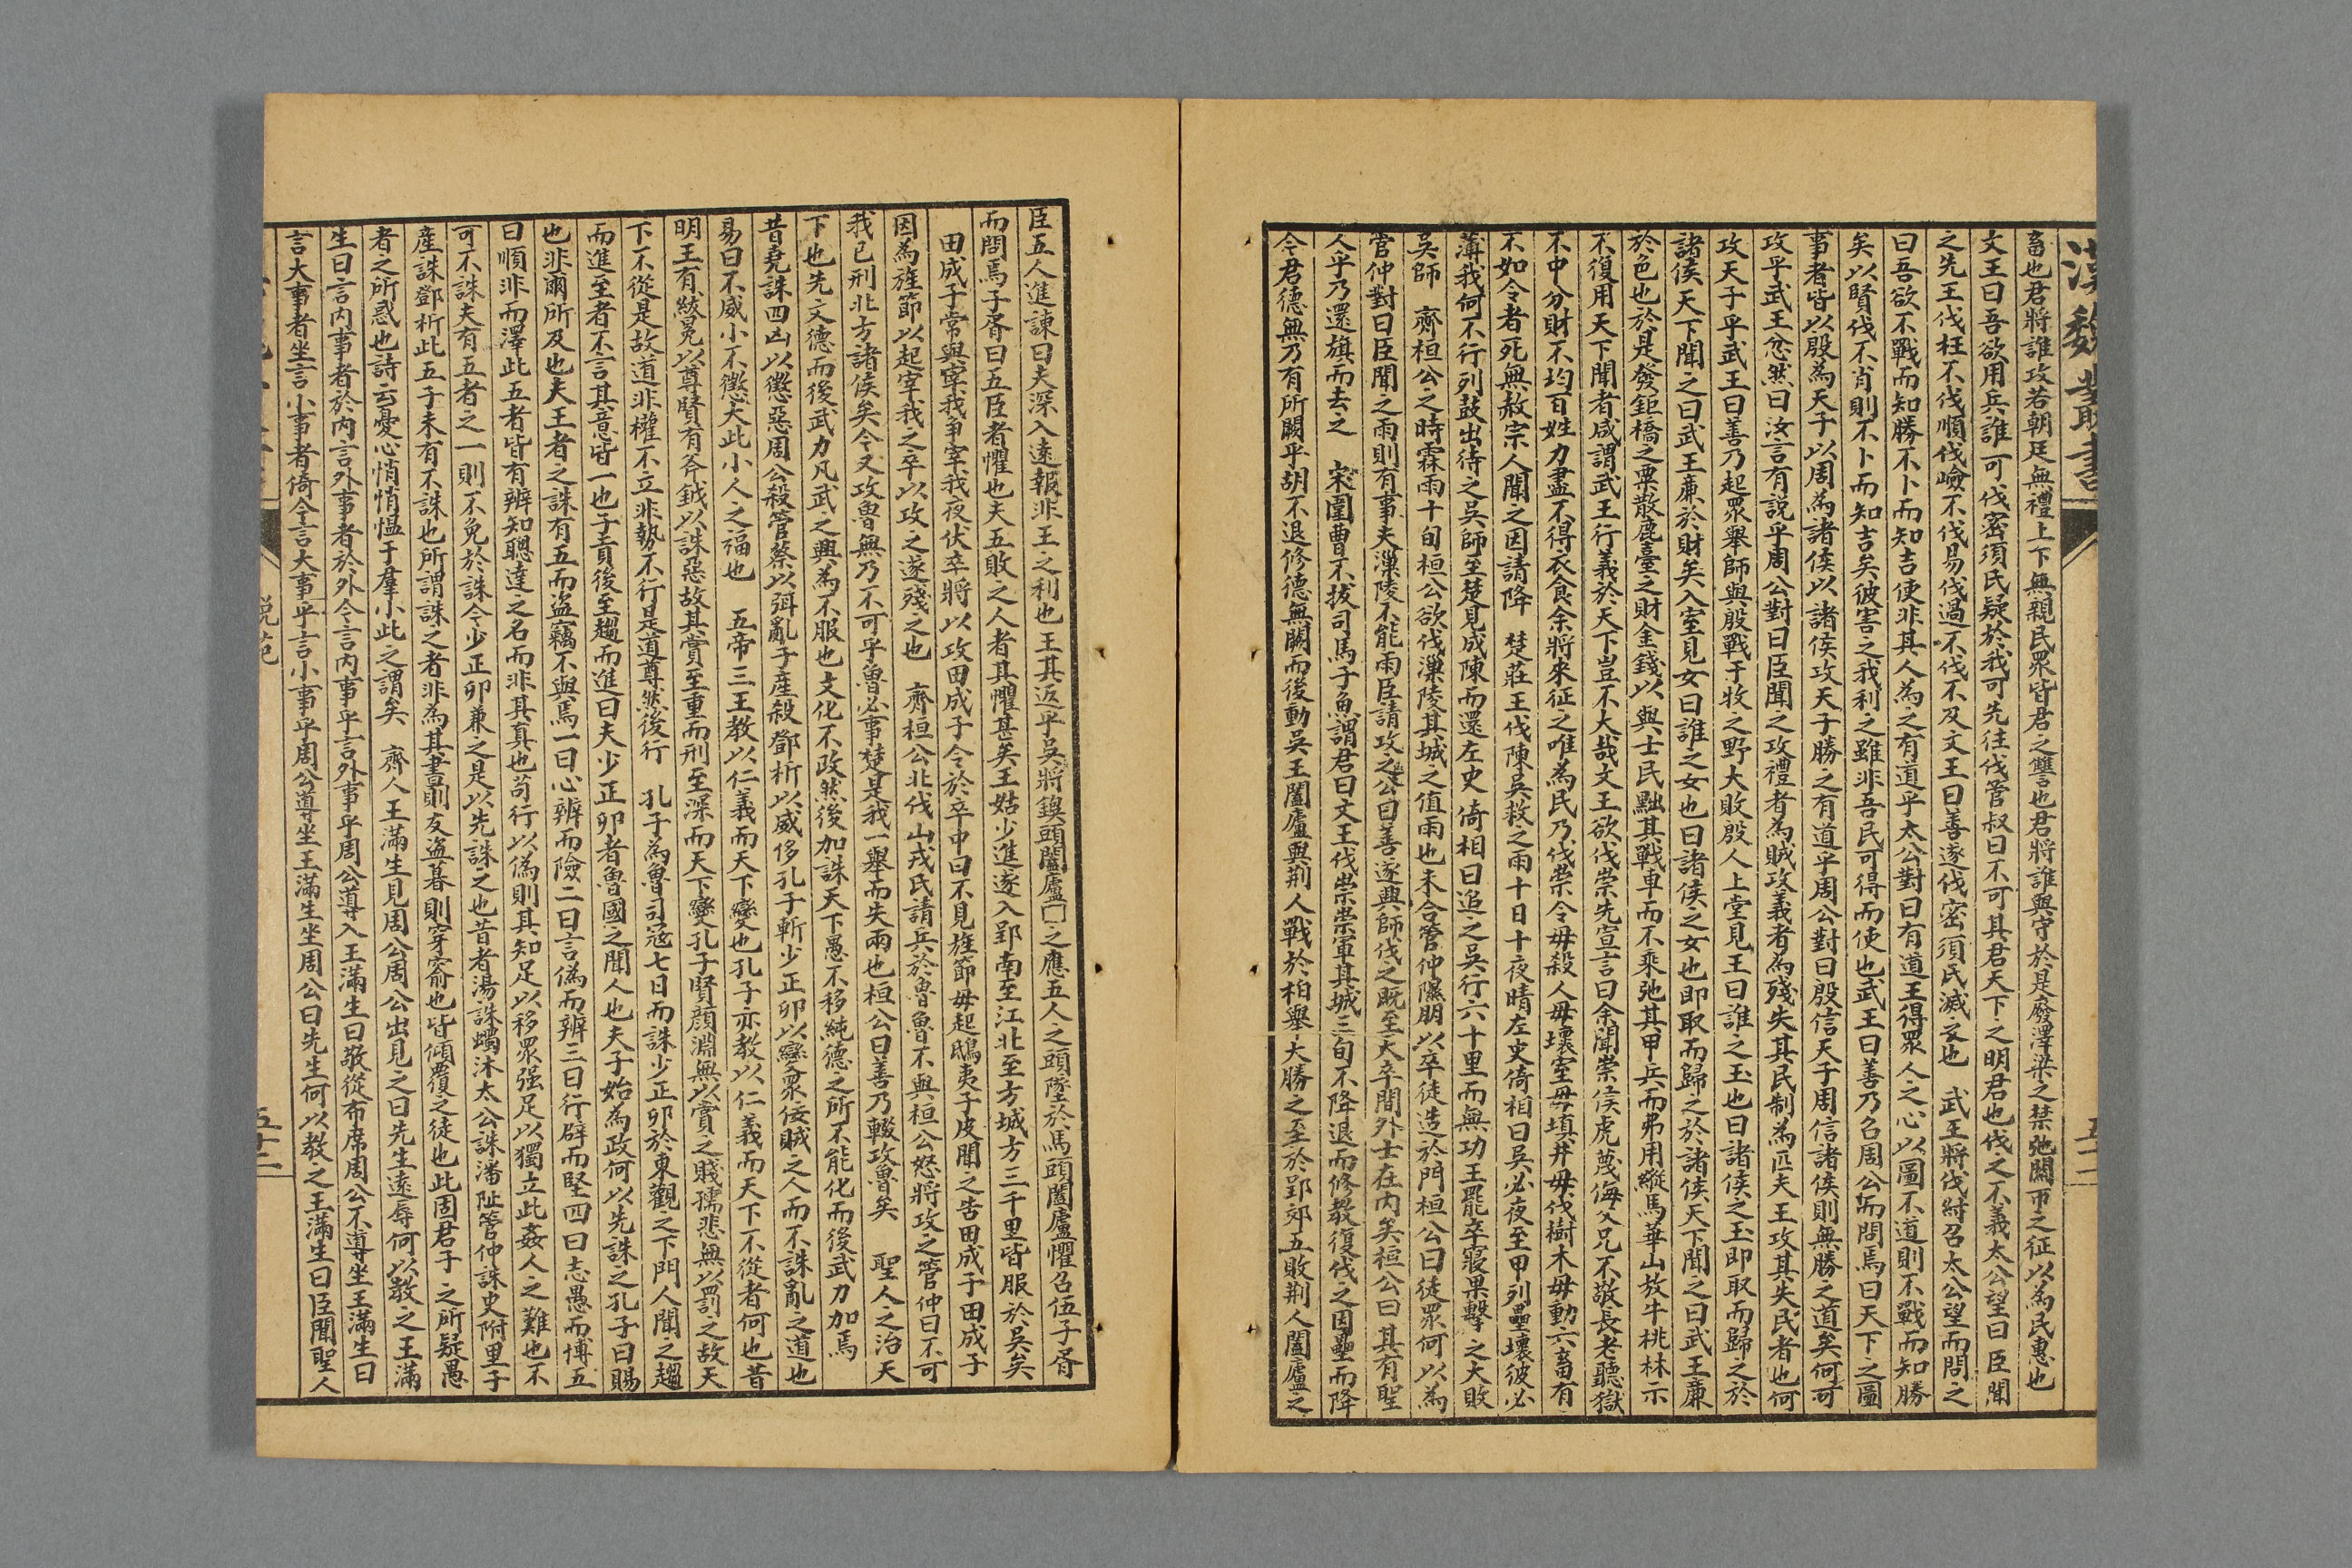 漢魏叢書
畜也君將誰攻若朝廷無禮上下無親民眾皆君之讐也君將誰與守於是廢澤梁之禁弛關市之征以為民惠也
文王曰吾欲用兵誰可伐密須氏疑於我可先往伐管叔曰不可其君天下之明君也伐之不義太公望曰臣聞
之先王伐枉不伐順伐嶮不伐易伐過不伐不及文王曰善遂伐密須氏滅之也　武王將伐紂召太公望而問之
曰吾欲不戰而知勝不卜而知吉使非其人為之有道乎太公對曰有道王得眾人之心以圖不道則不戰而知勝
矣以賢伐不肖則不卜而知吉矣彼害之我利之雖非吾民可得而使也武王曰善乃召周公而問焉曰天下之圖
事者皆以殷為天子以周為諸侯以諸侯攻天子勝之有道乎周公對曰殷信天子周信諸侯則無勝之道矣何可
攻乎武王忿然曰汝言有説乎周公對曰臣聞之攻禮者為賊攻義者為殘失其民制為匹夫王攻其失民者也何
攻天子乎武王曰善乃起眾舉師與殷戰于牧之野大敗殷人上堂見玉曰誰之玉也曰諸侯之玉即取而歸之於
諸侯天下聞之曰武王廉於財矣入室見女曰誰之女也曰諸侯之女也即取而歸之於諸侯天下聞之曰武王廉
於色也於是發鉅橋之粟散鹿臺之財金錢以與士民黜其戰車而不乘弛其甲兵而弗用縱馬華山放牛桃林示
不復用天下聞者咸謂武王行義於天下豈不大哉文王欲伐崇先宣言曰余聞崇侯虎蔑侮父兄不敬長老聽獄
不中分財不均百姓力盡不得衣食余將來征之唯為民乃伐崇令毋殺人毋壞室毋填井毋伐樹木毋動六畜有
不如令者死無赦崇人聞之因請降　楚莊王伐陳吳救之雨十日十夜晴左史倚相曰吳必夜至甲列壘壞彼必
薄我何不行列鼓出待之吳師至楚見成陳而還左史倚相曰追之吳行六十里而無功王罷卒寢果擊之大敗
吳師　齊桓公之時霖雨十旬桓公欲伐漅陵其城之值雨也未合管仲隰朋以卒徒造於門桓公曰徒眾何以為
管仲對曰臣聞之雨則有事夫漅陵不能雨臣請攻之公曰善遂興師伐之既至大卒間外士在內矣桓公曰其有聖
人乎乃還旗而去之　宋圍曹不拔司馬子魚謂君曰文王伐崇崇軍其城三旬不降退而修教復伐之因壘而降
今君德無乃有所闕乎胡不退修德無闕而後動吳王闔廬與荆人戰於柏舉大勝之至於郢郊五敗荆人闔廬之
臣五人進諫曰夫深入遠報非王之利也王其返乎吳將鍥頭闔廬□之應五人之頭墜於馬頭闔廬懼召伍子胥
而問焉子胥曰五臣者懼也夫五敗之人者其懼甚矣王姑少進遂入郢南至江北至方城方三千里皆服於吳矣
田成子常與宰我爭宰我夜伏卒將以攻田成子令於卒中曰不見旌節毋起鴟夷子皮聞之告田成子田成子
因為旌節以起宰我之卒以攻之遂殘之也　齊桓公北伐山戎氏請兵於魯魯不與桓公怒將攻之管仲曰不可
我已刑北方諸侯矣今又攻魯無乃不可乎魯必事楚是我一舉而失兩也桓公曰善乃輟攻魯矣　聖人之治天
下也先文德而後武力凡武之興為不服也文化不政然後加誅天下愚不移純德之所不能化而後武力加焉
昔堯誅四凶以懲惡周公殺管蔡以弭亂子產殺鄧析以威侈孔子斬少正卯以變衆佞賊之人而不誅亂之道也
易曰不威小不懲大此小人之福也　五帝三王教以仁義而天下變也孔子亦教以仁義而天下不從者何也昔
明王有紱冕以尊賢有斧鉞以誅惡故其賞至重而刑至深而天下變孔子賢顏淵無以賞之賤孺悲無以罰之故天
下不從是故道非權不立非勢不行是道尊然後行　孔子為魯司寇七日而誅少正卯於東觀之下門人聞之趨
而進至者不言其意皆一也子貢後至趨而進曰夫少正卯者魯國之聞人也夫子始為政何以先誅之孔子曰賜
也非爾所及也夫王者之誅有五而盜竊不與焉一曰心辨而險二曰言偽而辨三曰行辟而堅四曰志愚而博五
曰順非而澤此五者皆有辨知聰達之名而非其真也苟行以偽則其知足以移眾强足以獨立此姦人之難也不
可不誅夫有五者之一則不免於誅今少正卯兼之是以先誅之也昔者湯誅蠋沐太公誅潘阯管仲誅史附里子
產誅鄧析此五子未有不誅也所謂誅之者非為其晝則攻盜暮則穿窬也皆傾覆之徒也此固君子之所疑愚
者之所惑也詩云憂心悄悄慍于羣小此之謂矣　齊人王滿生見周公周公出見之曰先生遠辱何以教之王滿
生曰言內事者於內言外事者於外今言內事乎言外事乎周公導入王滿生曰敬從布席周公不導坐王滿生曰
言大事者坐言小事者倚今言大事乎言小事乎周公導坐王滿生坐周公曰先生何以教之王滿生曰臣聞聖人
説苑
五十二